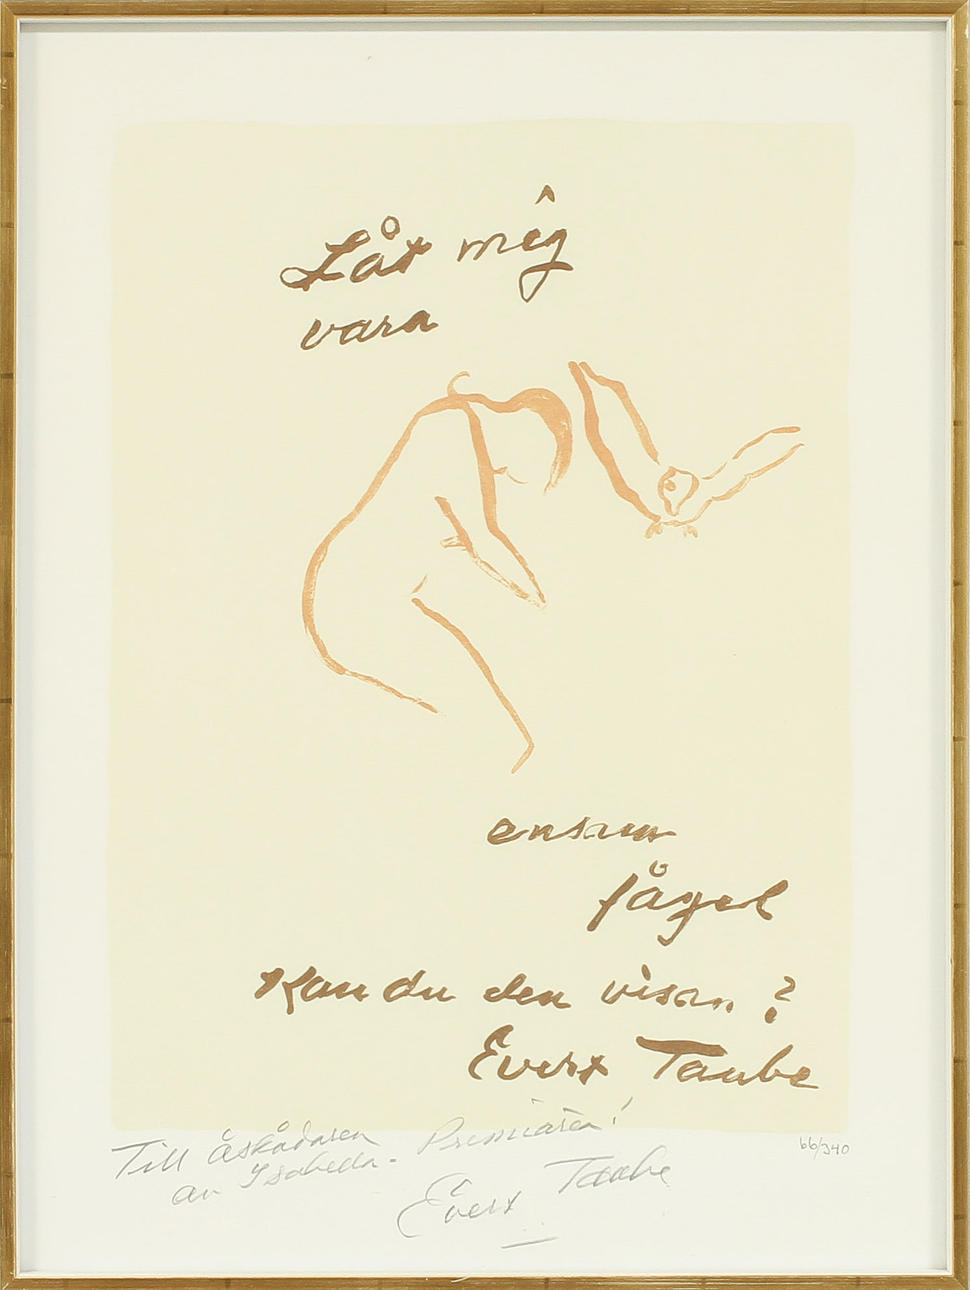 Låt mig
vara
ensam
fågel
Kan du den visan?
Evert Taube
Till åskådaren Premiären!
av Isabella - 
Evert Taube
66/340